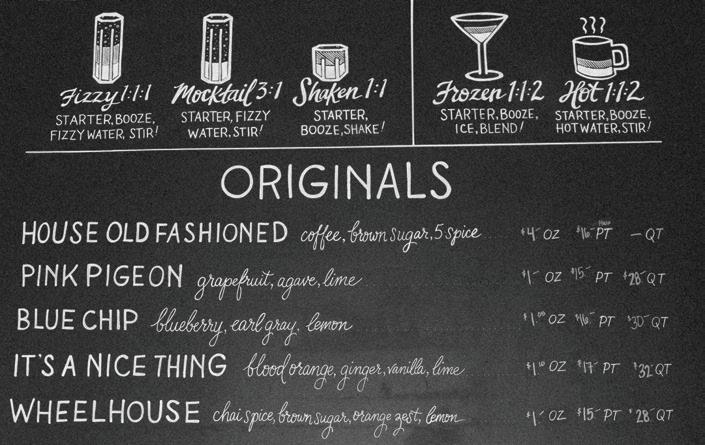 Fizzy 1:1:1
STARTER, BOOZE,
FIZZY WATER, STIR!
Mocktail 3:1
STARTER, FIZZY
WATER, STIR!
Shaken 1:1
STARTER,
BOOZE, SHAKE!
Frozen 1:1:2
STARTER, BOOZE,
ICE, BLEND!
Hot 1:1:2
STARTER, BOOZE,
HOT WATER, STIR!
ORIGINALS
HOUSE OLD FASHIONED coffee, brown sugar, 5 spice $4 OZ $16 PT – QT
PINK PIGEON grapefruit, agave, lime $1 OZ $15 PT $28 QT
BLUE CHIP blueberry, earl gray, lemon $1.00 OZ $16 PT $30 QT
IT'S A NICE THING blood orange, ginger, vanilla, lime $1.10 OZ $17 PT $32 QT
WHEELHOUSE chai spice, brown sugar, orange zest, lemon $1 OZ $15 PT $28 QT